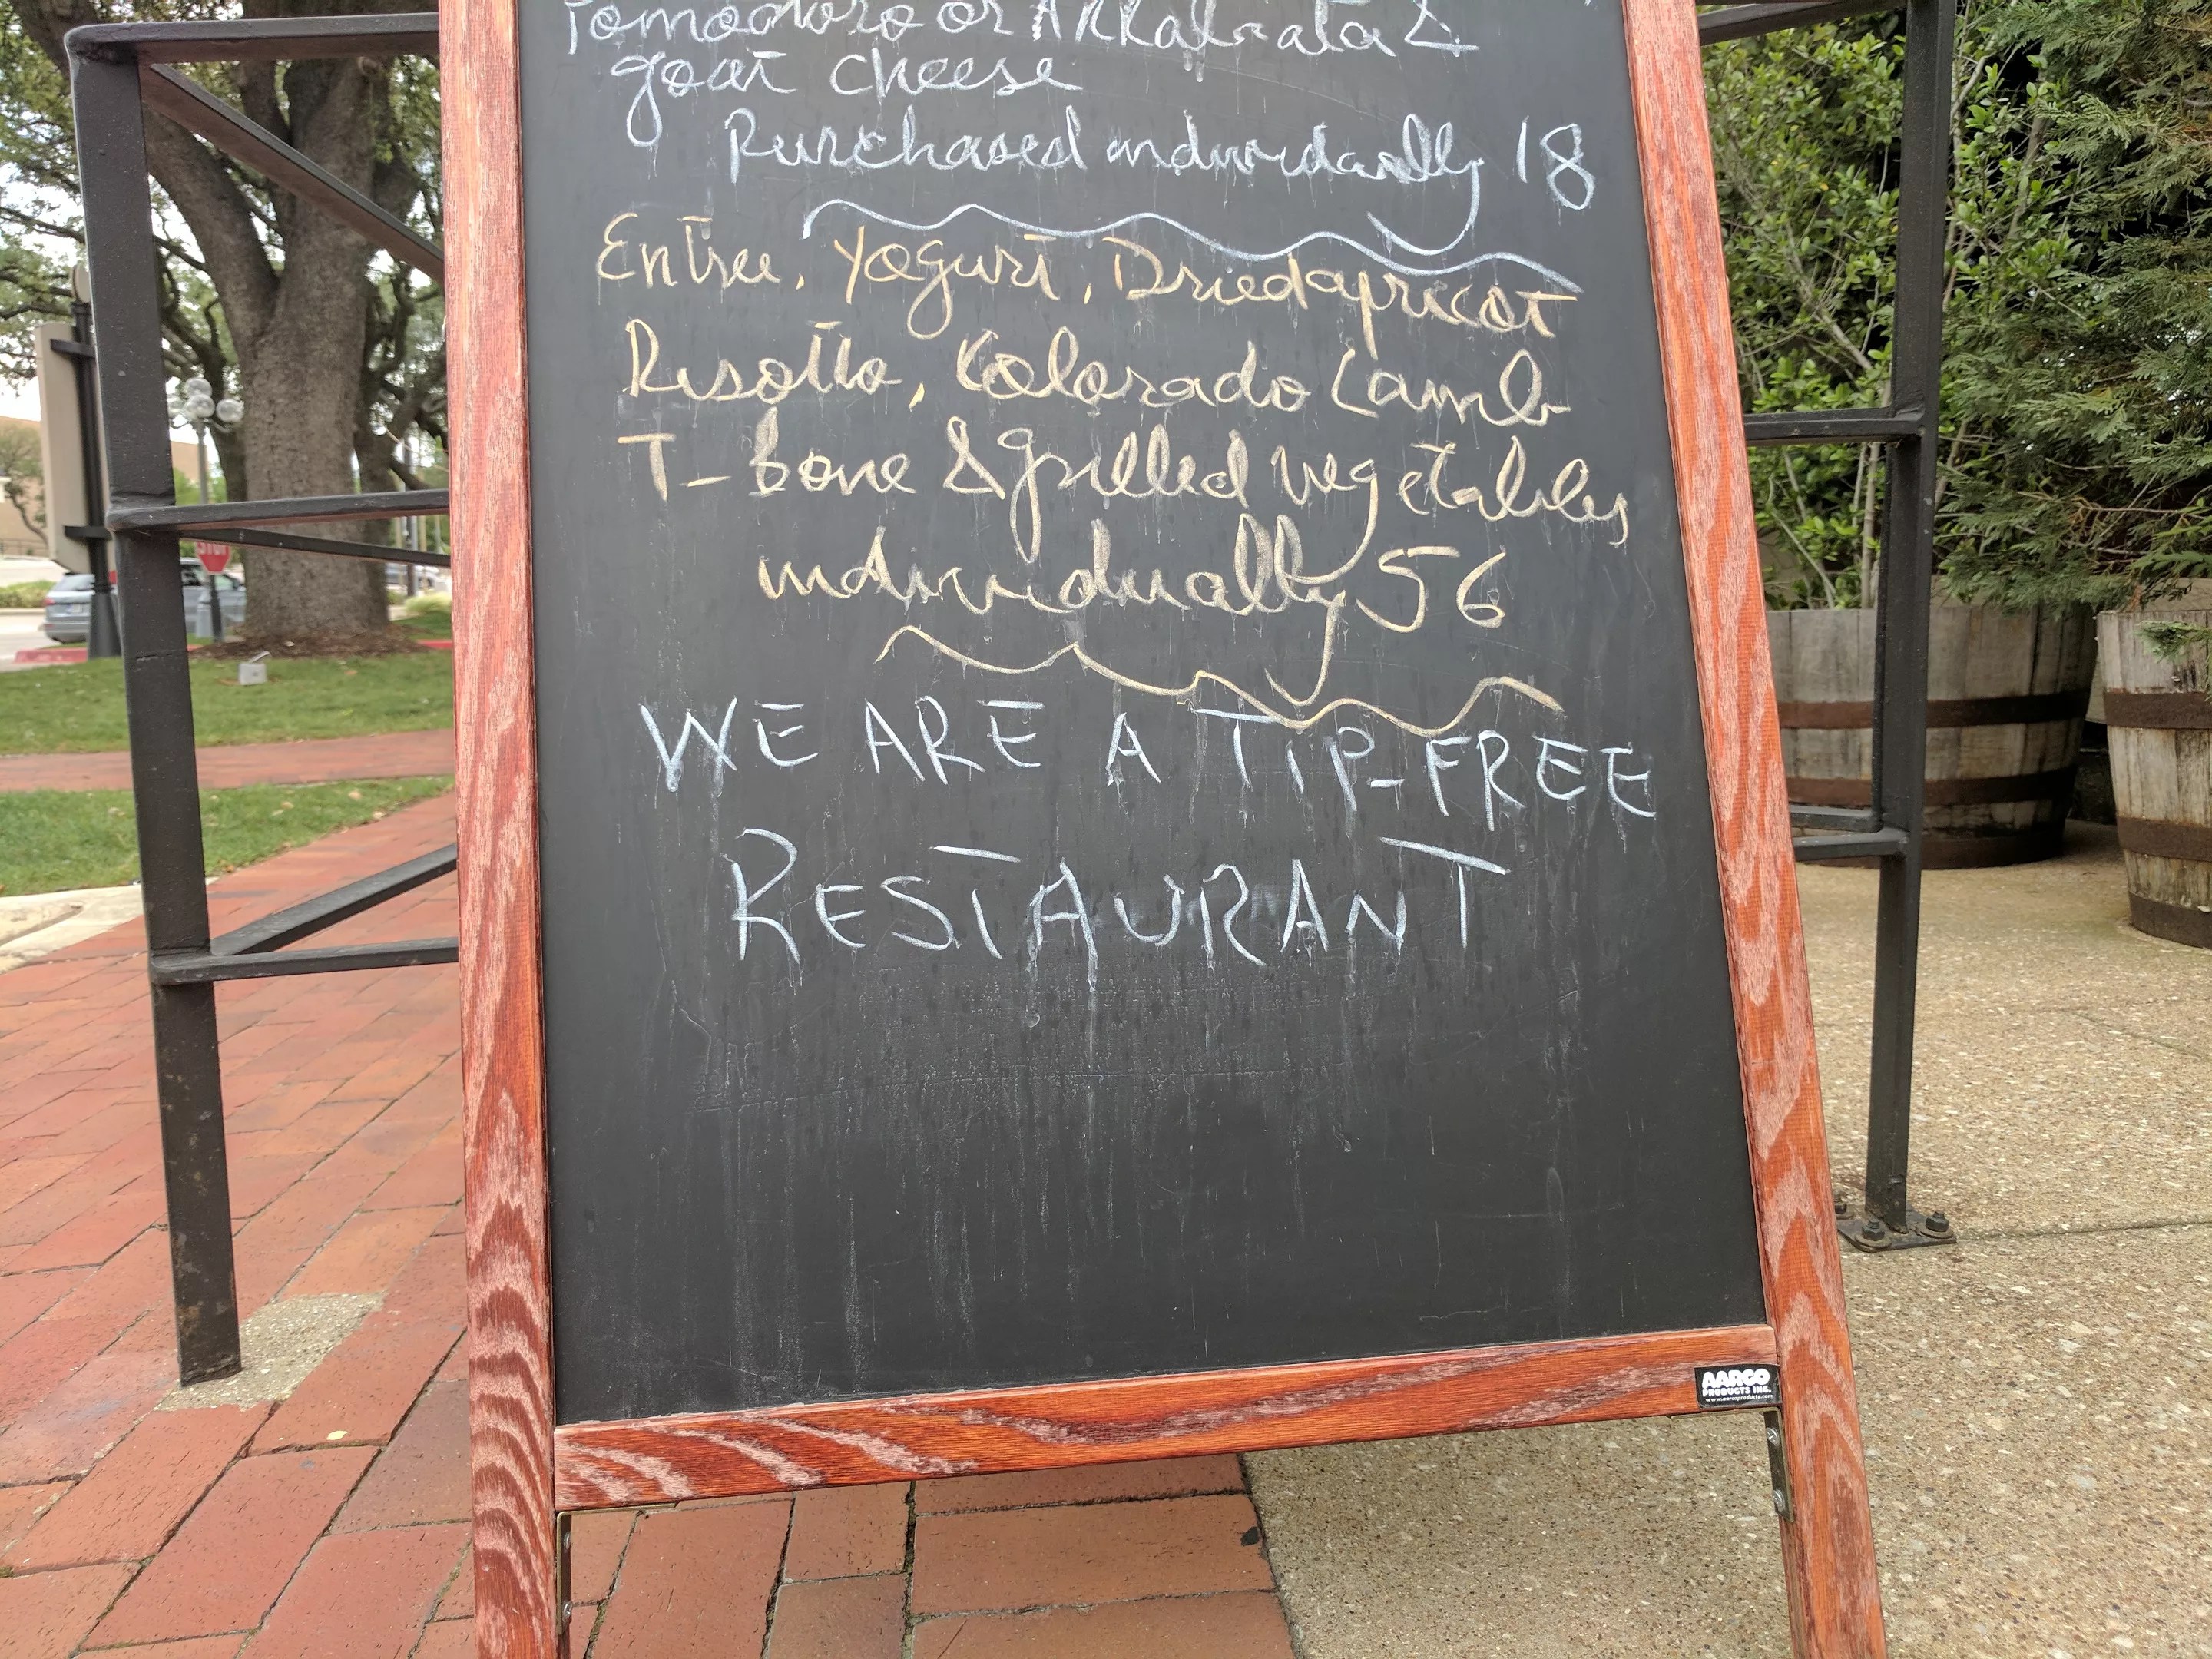 Pomodoro or Arrabiata &
goat cheese
Purchased individually 18
Entree, Yogurt, Dried apricot
Risotto, Colorado Lamb
T-bone & grilled vegetables
individually 56
WE ARE A TIP-FREE
RESTAURANT
STOP
AARCO
PRODUCTS INC.
www.aarcoproducts.com